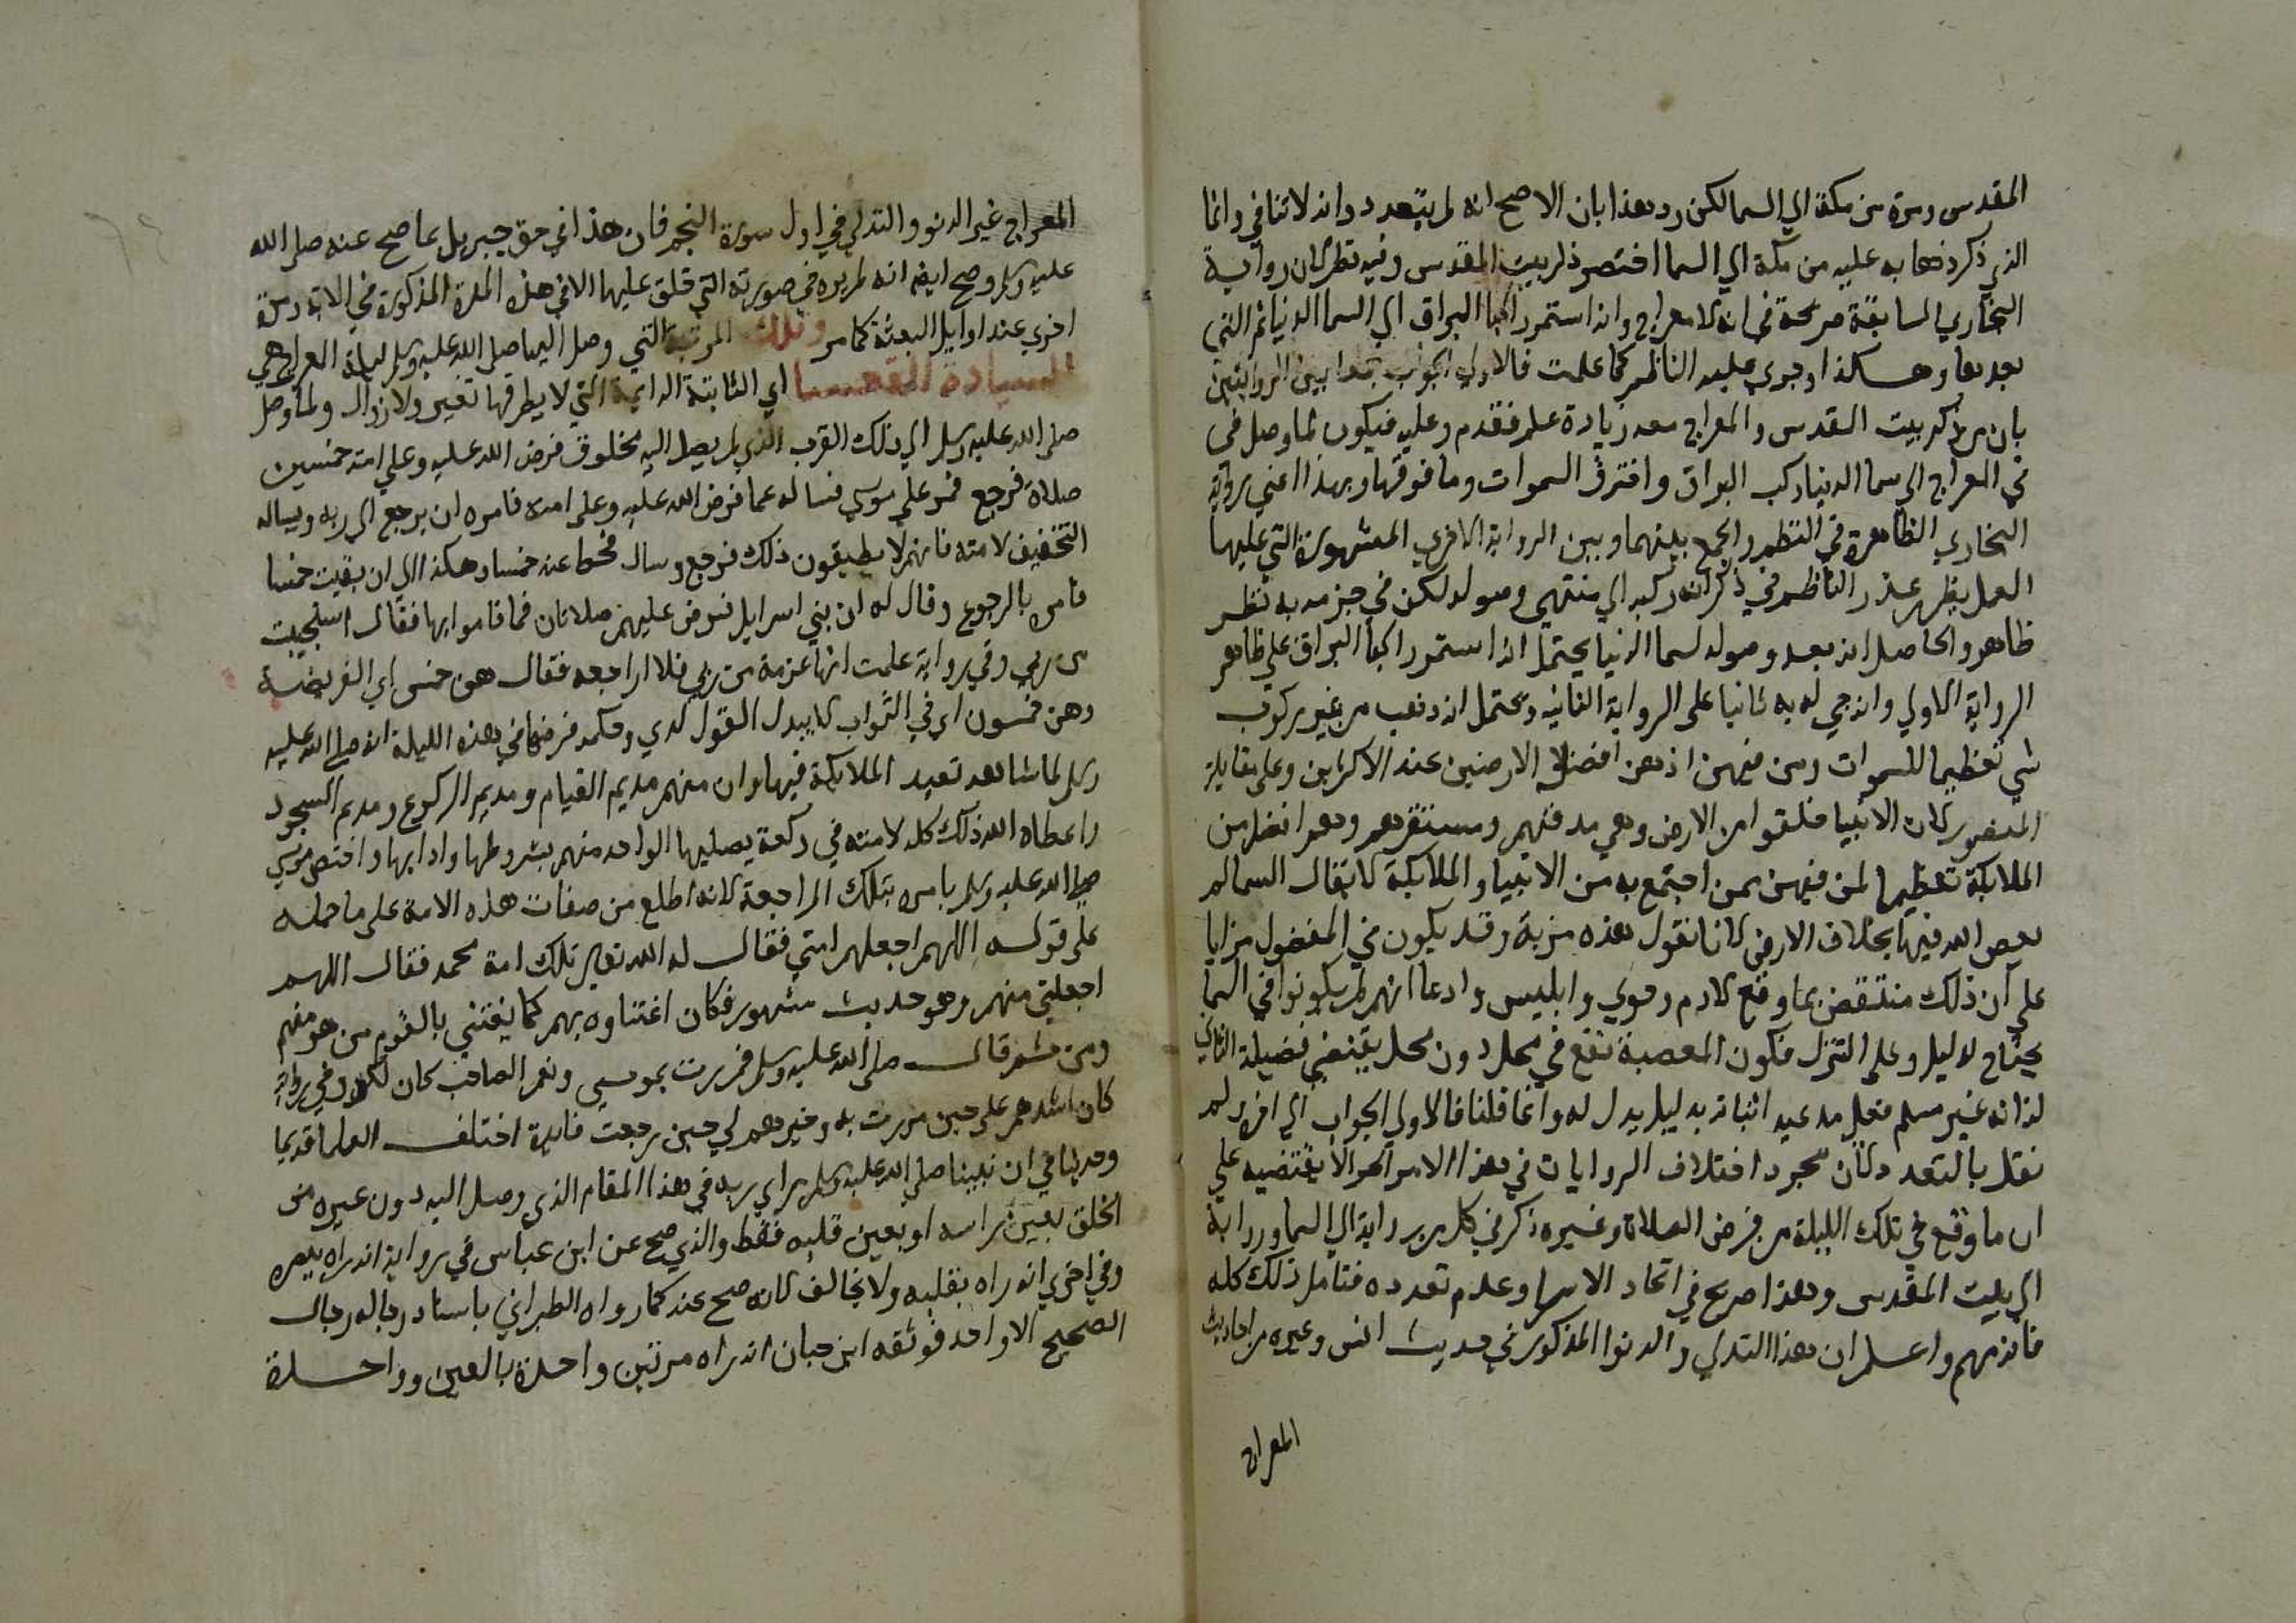 المقدس ومرة من مكة الي السما لكن رد هذا بان الاصح انه لم يتعدد وانه لا تنافي وانما
الذي ذكر ذهابه عليه من مكة الي السما اختصر ذكر بيت المقدس وفيه نظر لان رواية
البخاري السابقة صريحة في انه لا معراج وانه استمر راكبا البراق الي السما الدنيا ثم التي
بعدها وهكذا وجري عليه الناظم كما علمت فالاولي الجواب جمعا بين الروايتين
بان من ذكر بيت المقدس والمعراج معه زيادة علم فقدم وعليه فيكون لما وصل في
في المعراج الي سما الدنيا ركب البراق واخترق السموات وما فوقها وبهذا اعني رواية
البخاري الظاهرة في النظم والجمع بينهما وبين الرواية الاخري المشهورة التي عليها
العمل يظهر عذر الناظم في ذكر انه ركبه الي منتهي وصوله لكن في جزمه به نظر
ظاهر والحاصل انه بعد وصوله لسما الدنيا يحتمل انه استمر راكبا البراق علي ظاهر
الرواية الاولي وانه جي له به ثانيا علي الرواية الثانية ويحتمل انه ذهب من غير ركوب
شي تعظيما للسموات ومن فيهن اذ هن افضل من الارضين عند الاكثرين وعلي مقابله
المنصور لان الانبيا خلقوا من الارض وهي مدفنهم ومستقرهم وهم افضل من
الملايكة تعظيما لمن فيهن ممن اجتمع به من الانبيا والملايكة لا يقال السما لم
يعص الله فيها بخلاف الارض لانا نقول هذه مزية وقد يكون في المفضول مزايا
علي ان ذلك منتقض بما وقع لادم وحوي وابليس وادعا انهم لم يكونوا في السما
يحتاج لدليل وعلي التنزل فكون المعصية تقع في محل دون محل يقتضي فضيلة الثاني
لذاته غير مسلم فعلي مدعيه اثباته بدليل يدل له وانما قلنا فالاولي الجواب الي اخره ولم
نقل بالتعدد لان مجرد اختلاف الروايات في هذا الامر الا يقتضيه علي
ان ما وقع في تلك الليلة من فرض الصلاة وغيره ذكر في كل من رواية الي السما ورواية
الي بيت المقدس وهذا صريح في اتحاد الاسرا وعدم تعدده فتامل ذلك كله
فانه مهم واعلم ان هذا التدلي والدنو المذكور في حديث انس وغيره من احاديث
المعراج
المعراج غير الدنو والتدلي في اول سورة النجم فان هذا في حق جبريل بما صح عنه صلى الله
عليه وسلم وصح ايضا انه لم يره في صورته التي خلق عليها الا في هذه المرة المذكورة في الاية ومرة
اخري عند اوايل البعثة كما مر وتلك المرتبة التي وصل اليها صلى الله عليه وسلم ليلة المعراج هي
السيادة القعسا اي الثابتة الدايمة التي لا يطرقها تغير ولا زوال ولما وصل
صلى الله عليه وسلم الي ذلك القرب الذي لم يصل اليه مخلوق فرض الله عليه وعلي امته خمسين
صلاة فرجع فمر علي موسي فساله عما فرض الله عليه وعلى امته فامره ان يرجع الي ربه ويساله
التخفيف لامته فانهم لا يطيقون ذلك فرجع وسال فحط عنه خمسا وهكذا الي ان بقيت خمسا
فامره بالرجوع وقال له ان بني اسرايل فرض عليهم صلاتان فما قاموا بها فقال استحييت
من ربي وفي رواية علمت انها عزمة من ربي فلا اراجعه فقال هن خمس اي الفريضة
وهن خمسون اي في الثواب لا يبدل القول لدي وحكمة فرضها في هذه الليلة انه صلى الله عليه
وسلم لما شاهد تعبد الملايكة فيها وان منهم مديم القيام ومديم الركوع ومديم السجود
واعطاه الله ذلك كله لامته في ركعة يصليها الواحد منهم بشروطها وادابها واختص موسي
صلى الله عليه وسلم بامره بتلك المراجعة لانه اطلع من صفات هذه الامة على ما حمله
على قوله اللهم اجعلهم امتي فقال له الله تعالى تلك امة محمد فقال اللهم
اجعلني منهم وهو حديث مشهور فكان اعتناوه بهم كما يعتني بالقوم من هو منهم
ومن ثم قال صلى الله عليه وسلم فمررت بموسي ونعم الصاحب كان لكم وفي رواية
كان اشدهم على حين مررت به وخيرهم لي حين رجعت فايدة اختلف العلما قديما
وحديثا في ان نبينا صلى الله عليه وسلم راي ربه في هذا المقام الذي وصل اليه دون غيره من
الخلق بعين راسه او بعين قلبه فقط والذي صح عن ابن عباس في رواية انه راه ببصره
وفي اخري انه راه بقلبه ولا يخالف لانه صح عنه كما رواه الطبراني باسناد رجاله رجال
الصحيح الا واحد فوثقه ابن حبان انه راه مرتين واحدة بالعين وواحدة